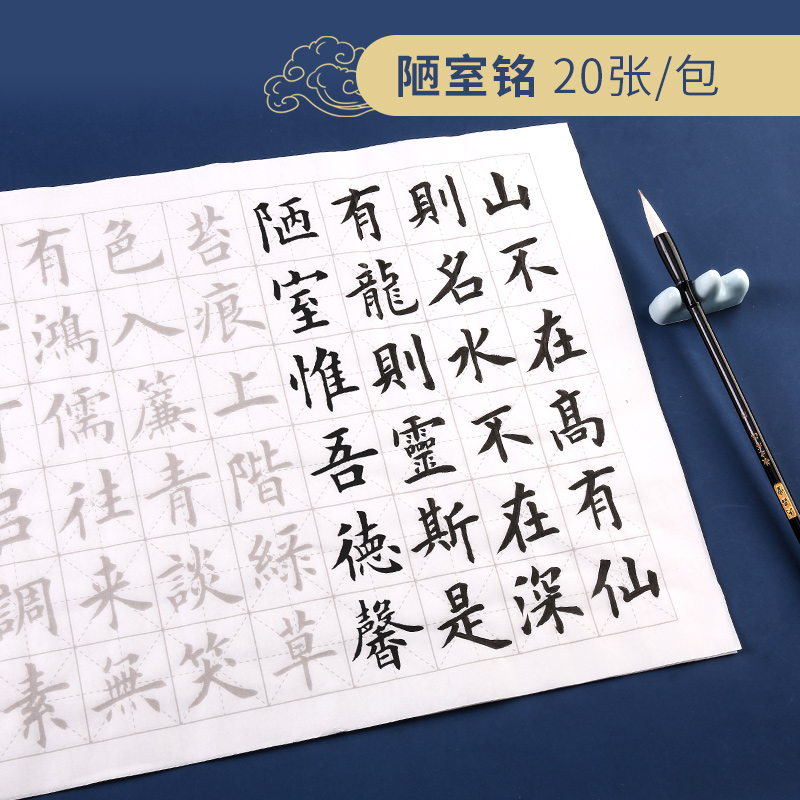 陋室铭 20张/包
山不在髙有仙
則名水不在深
有龍則靈斯是
陋室惟吾徳馨
苔痕上階綠草
色入簾青談笑
有鴻儒往来無
調素